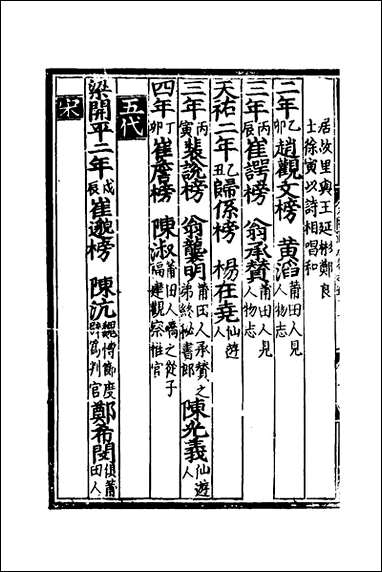 居故里與王延彬鄭良
士徐寅以詩相唱和
二年乙卯趙觀文榜 黃滔莆田人見人物志
三年丙辰崔諤榜 翁承贊莆田人見人物志
天祐二年乙丑歸係榜 楊在堯仙遊人
三年丙寅裴說榜 翁襲明莆田人承贊之弟終秘書郎 陳光義仙遊人
四年丁卯崔詹榜 陳淑莆田人嶠之從子福建觀察推官
五代
梁開平二年戊辰崔邈榜 陳沆魏博節度判官 鄭希閔莆田人
宋